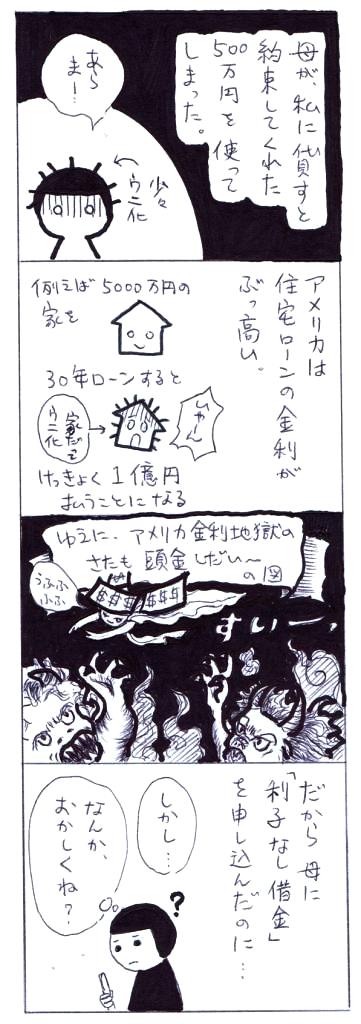 母が、私に貸すと
約束してくれた
500万円を使って
しまった。
あら
まー!
少々
ウニ化
アメリカは
住宅ローンの金利が
ぶっ高い。
例えば5000万円の
家を
30年ローンすると
家だって
ウニ化
いやん
けっきょく1億円
払うことになる
ゆえに、アメリカ金利地獄の
さたも頭金しだい〜
の図
うふふ
ふふ
$$$
$$$
すいーっ
だから母に
「利子なし借金」
を申し込んだのに…
しかし…
なんか、
おかしくね?
?